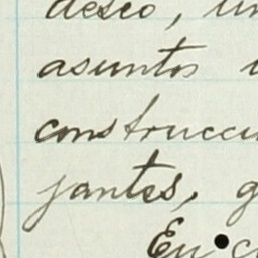 deseo, un
asuntos
construcci
jantes, g
En